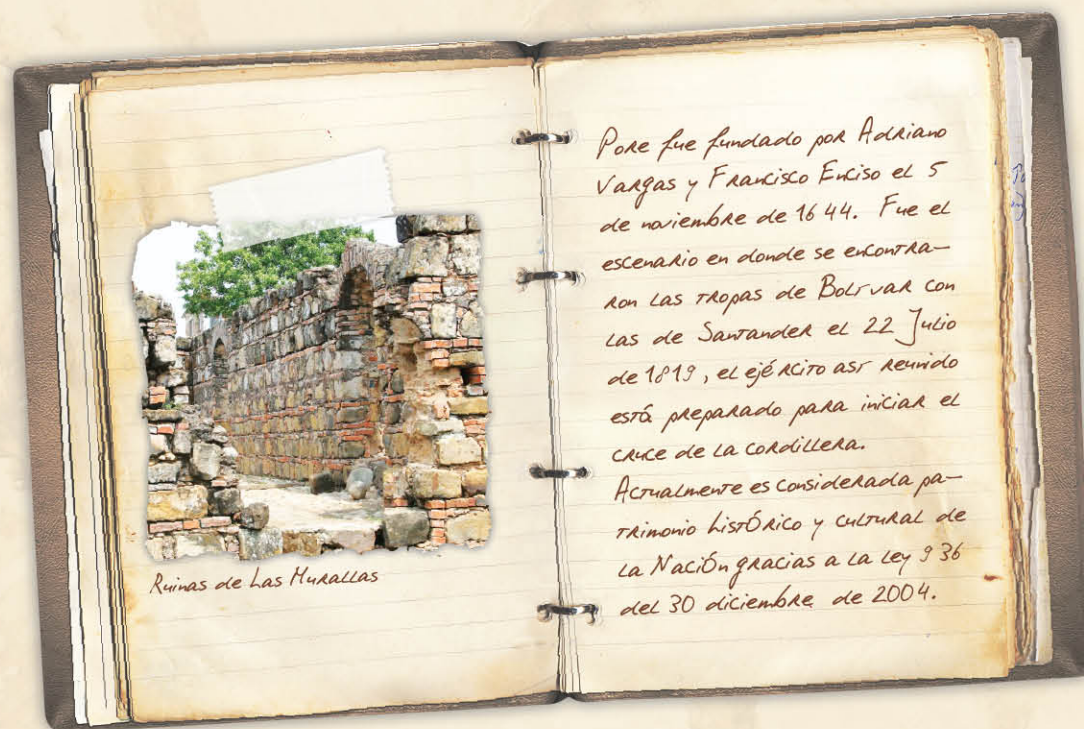 Ruinas de Las Murallas
Pore fue fundado por Adriano
Vargas y Francisco Enciso el 5
de noviembre de 1644. Fue el
escenario en donde se encontra-
ron las tropas de Bolívar con
las de Santander el 22 Julio
de 1819, el ejército así reunido
está preparado para iniciar el
cruce de la cordillera.
Actualmente es considerada pa-
trimonio histórico y cultural de
la Nación gracias a la ley 936
del 30 diciembre de 2004.